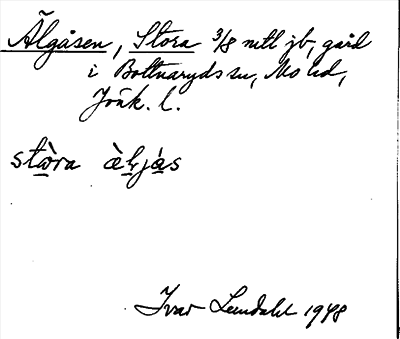 Älgåsen, Stora 3/8 mtl jb, gård
i Bottnaryds sn, Mo hd,
Jönk. l.
stòra æ̀ljås
Ivar Lundahl 1948